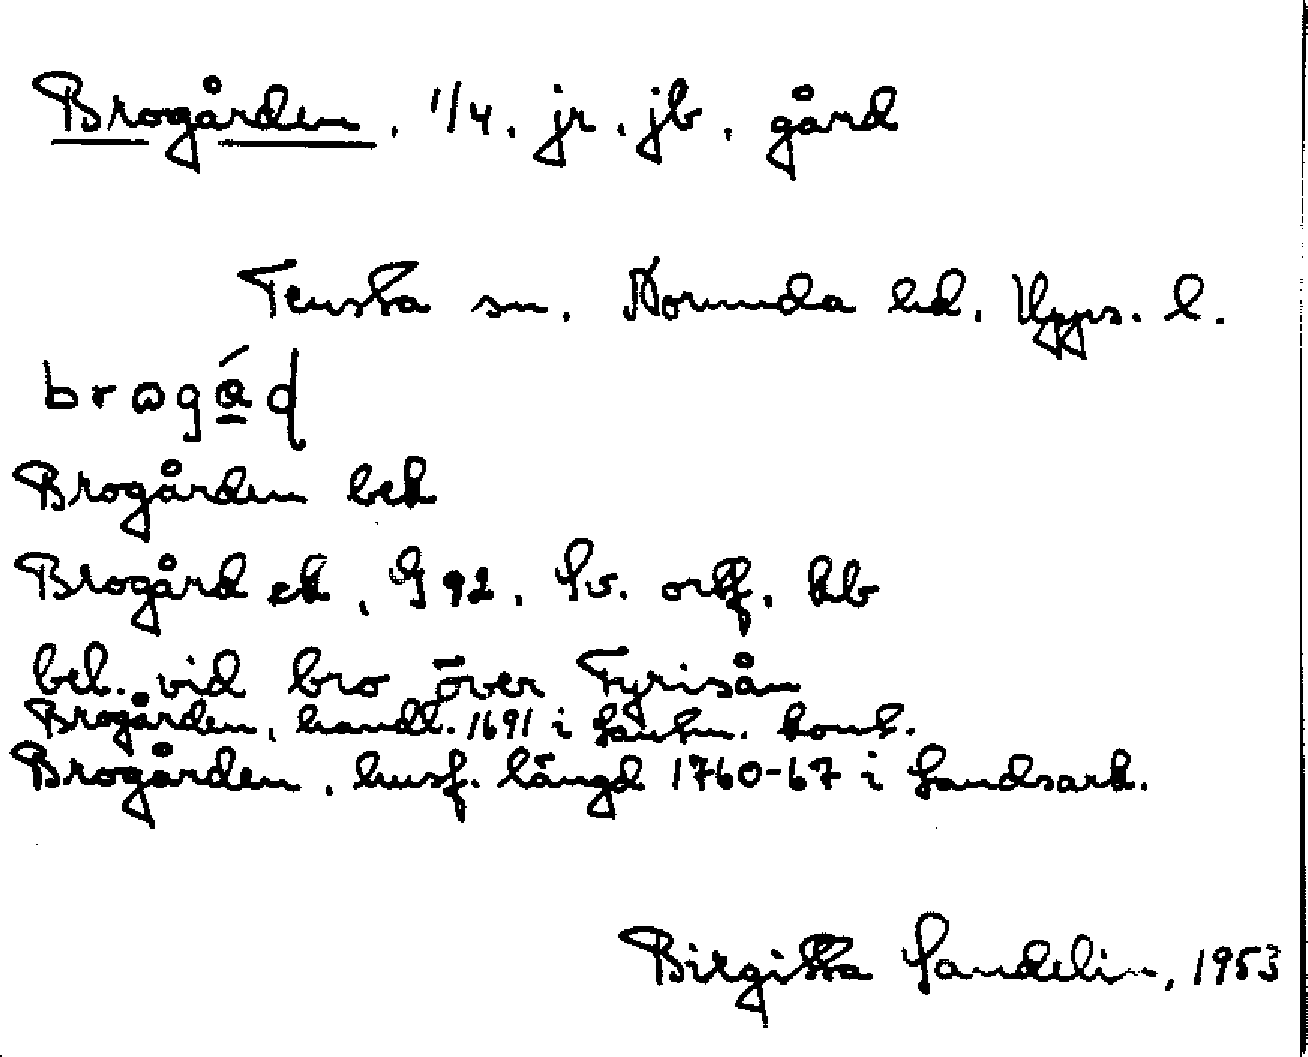 Brogården, 1/4, jr, jb, gård
Tensta sn, Norunda hd, Upps. l.
Brogården bek
Brogård ek, G 92, Sv. ortf, kb
bel. vid bro över Fyrisån
Brogården, handl. 1691 i Lantm. kont.
Brogården, husf. längd 1760-67 i Landsark.
Birgitta Sandelin, 1953